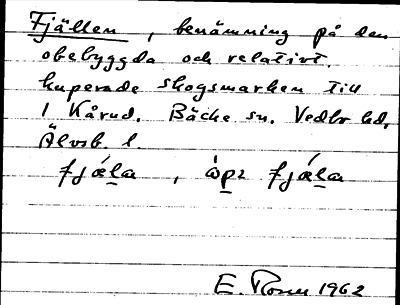 Fjällen, benämning på den
obebyggda och relativt.
kuperade skogsmarken till
1 Kårud. Bäcke sn. Vedbo hd,
Älvsb. l.
fjǽla, òpɪ fjǽla
E. Rosén 1962